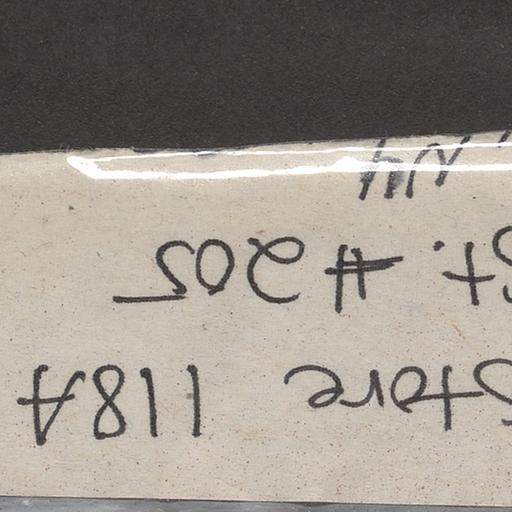 Store 118A
St. #205